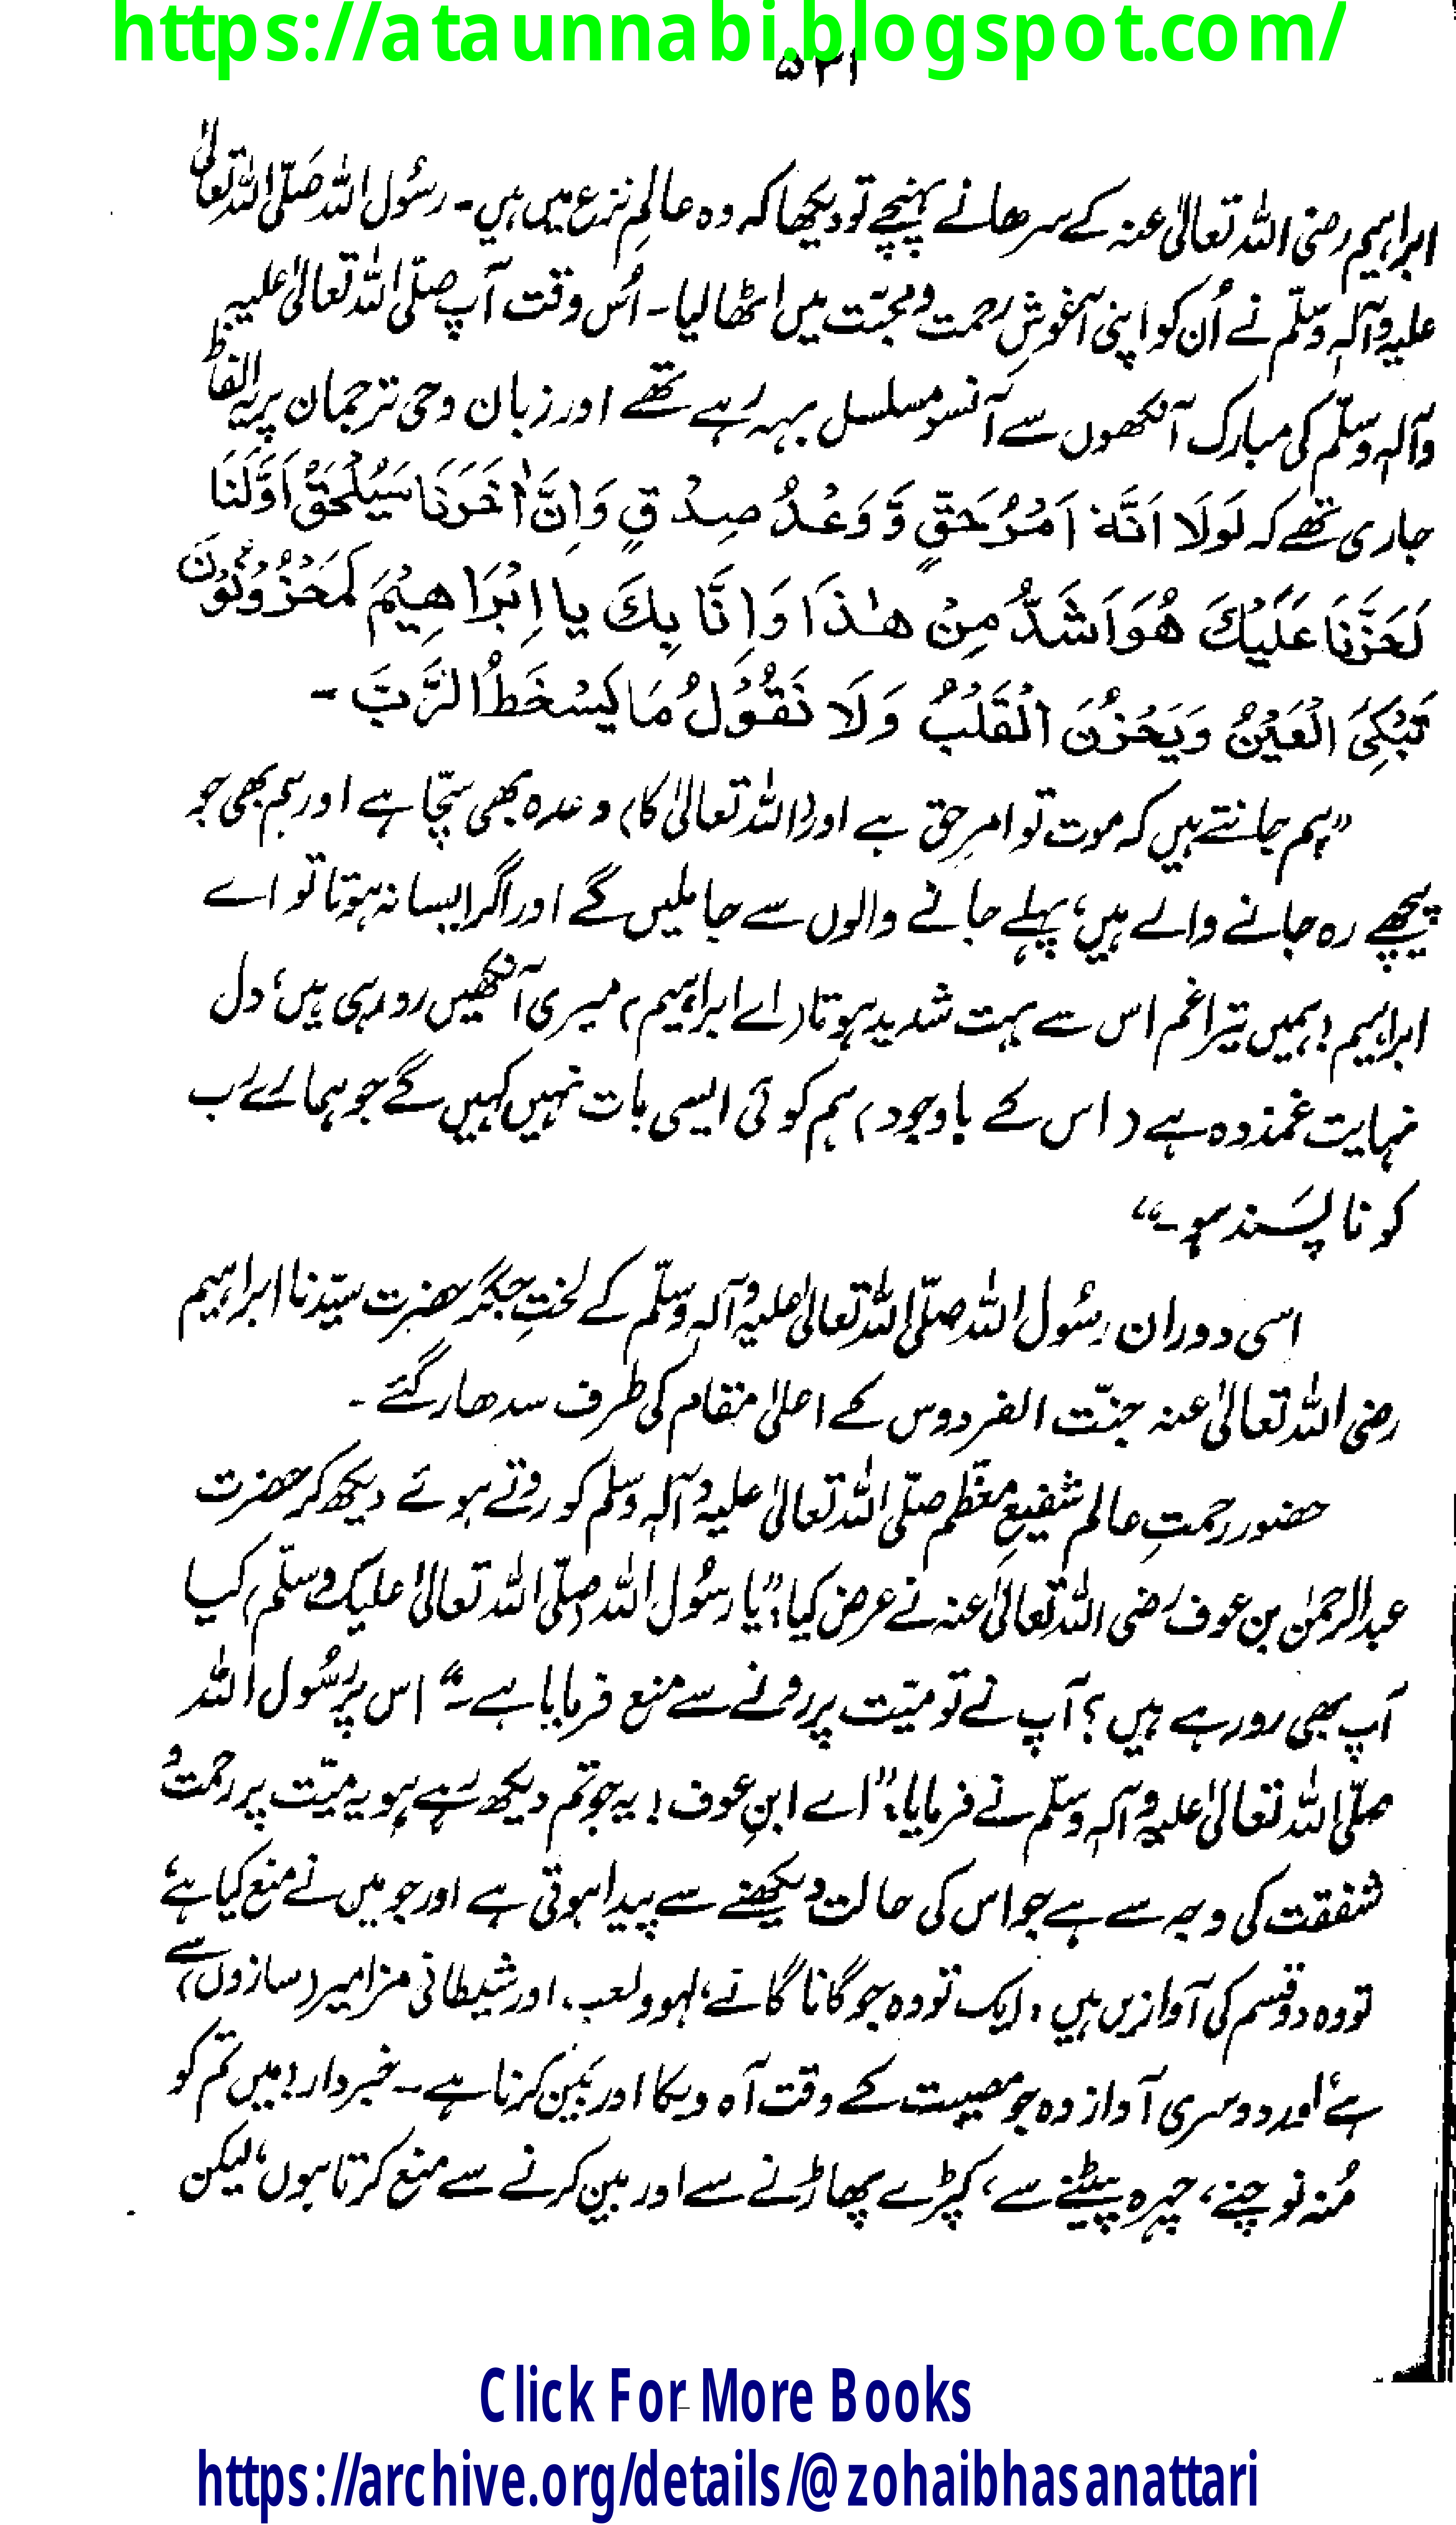 https://ataunnabi.blogspot.com/
۵۳۱
ابراہیم رضی اللہ تعالیٰ عنہ کے سرھانے پہنچے تو دیکھا کہ وہ عالمِ نزع میں ہیں۔ رسُول اللہ صَلّی اللہ تعالیٰ
علیہ وآلہٖ وسلّم نے اُن کو اپنی آغوشِ رحمت و محبّت میں اٹھا لیا۔ اُس وقت آپ صلّی اللہ تعالیٰ علیہ
وآلہٖ وسلّم کی مبارک آنکھوں سے آنسو مسلسل بہہ رہے تھے اور زبان وحی ترجمان پر یہ الفاظ
جاری تھے کہ لَوْلَا اَنَّهٗ اَمْرٌ حَقٍّ وَّ وَعْدٌ صِدْقٍ وَاِنَّ اٰخَرَنَا سَيُلْحَقُ اَوَّلَنَا
لَحَزَّنَا عَلَيْكَ هُوَ اَشَدُّ مِنْ هٰذَا وَاِنَّا بِكَ يا اِبْرَاهِيْمَ لَمَحْزُوْنُوْنَ
تَبْكِىَ الْعَيْنُ وَيَحْزُنَ الْقَلْبُ وَلَا نَقُوْلُ مَا يَسْخَطُ الرَّبَّ ۔
”ہم جانتے ہیں کہ موت تو امرِ حق ہے اور (اللہ تعالیٰ کا) وعدہ بھی سچّا ہے اور ہم بھی جو
پیچھے رہ جانے والے ہیں، پہلے جانے والوں سے جا ملیں گے اور اگر ایسا نہ ہوتا تو اے
ابراہیم! ہمیں تیرا غم اس سے بہت شدید ہوتا (اے ابراہیم) میری آنکھیں رو رہی ہیں، دل
نہایت غمزدہ ہے (اس کے باوجود) ہم کوئی ایسی بات نہیں کہیں گے جو ہمارے رب
کو ناپسَند ہو۔“
اسی دوران رسُول اللہ صلّی اللہ تعالیٰ علیہ وآلہٖ وسلّم کے لختِ جگر حضرت سیّدنا ابراہیم
رضی اللہ تعالیٰ عنہ جنّت الفردوس کے اعلیٰ مقام کی طرف سدھار گئے ۔
حضور رحمتِ عالم شفیعِ معظّم صلّی اللہ تعالیٰ علیہ وآلہٖ وسلم کو روتے ہوئے دیکھ کر حضرت
عبدالرحمٰن بن عوف رضی اللہ تعالیٰ عنہ نے عرض کیا: ”یا رسُول اللہ (صلّی اللہ تعالیٰ علیک وسلّم) کیا
آپ بھی رو رہے ہیں؟ آپ نے تو میّت پر رونے سے منع فرمایا ہے۔“ اس پر رسُول اللہ
صلّی اللہ تعالیٰ علیہ وآلہٖ وسلّم نے فرمایا: ”اے ابنِ عوف! یہ جو تم دیکھ رہے ہو یہ میّت پر رحمت و
شفقت کی وجہ سے ہے جو اس کی حالت دیکھنے سے پیدا ہوتی ہے اور جو میں نے منع کیا ہے،
تو وہ دو قسم کی آوازیں ہیں، ایک تو وہ جو گانا گانے، لہو ولعب، اور شیطانی مزامیر (سازوں) سے
ہے، اور دوسری آواز وہ جو مصیبت کے وقت آہ و بکا اور بَین کرنا ہے۔ خبردار! میں تم کو
مُنہ نوچنے، چہرہ پیٹنے سے، کپڑے پھاڑنے سے اور بین کرنے سے منع کرتا ہوں، لیکن
Click For More Books
https://archive.org/details/@zohaibhasanattari